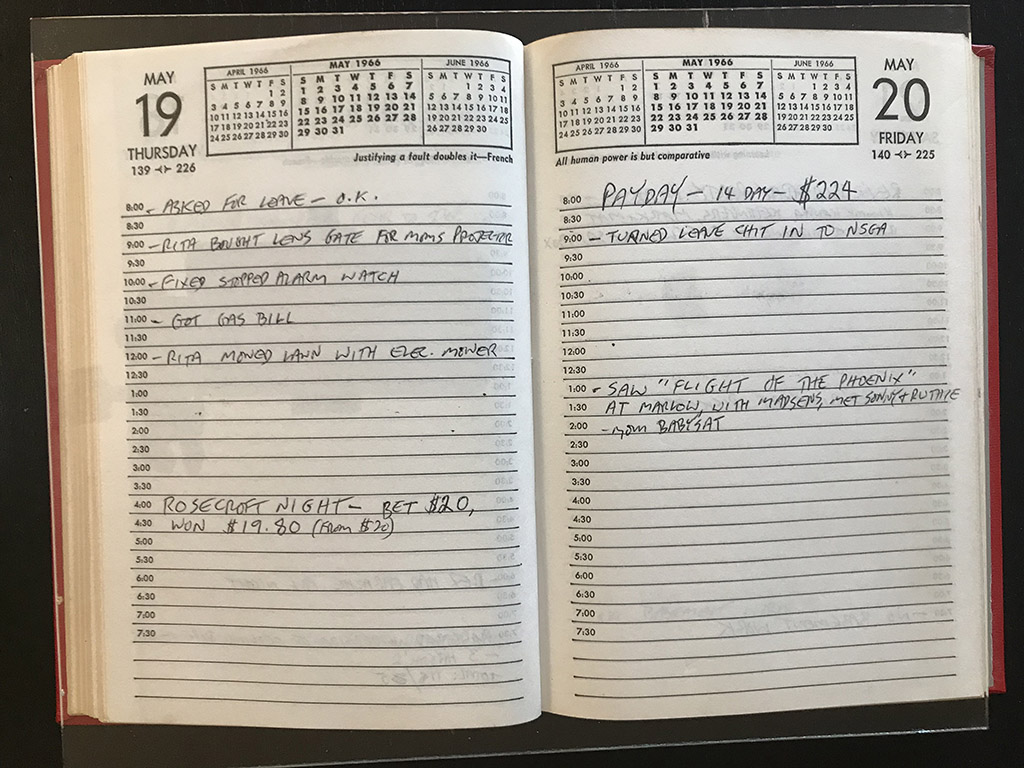 MAY
19
THURSDAY
139 226
APRIL 1966
S M T W T F S
1 2
3 4 5 6 7 8 9
10 11 12 13 14 15 16
17 18 19 20 21 22 23
24 25 26 27 28 29 30
MAY 1966
S M T W T F S
1 2 3 4 5 6 7
8 9 10 11 12 13 14
15 16 17 18 19 20 21
22 23 24 25 26 27 28
29 30 31
JUNE 1966
S M T W T F S
1 2 3 4
5 6 7 8 9 10 11
12 13 14 15 16 17 18
19 20 21 22 23 24 25
26 27 28 29 30
Justifying a fault doubles it—French
8:00 - ASKED FOR LEAVE - O.K.
8:30
9:00 - RITA BOUGHT LENS GATE FOR MOMS PROJECTOR
9:30
10:00 - FIXED STOPPED ALARM WATCH
10:30
11:00 - GOT GAS BILL
11:30
12:00 - RITA MOWED LAWN WITH ELEC. MOWER
12:30
1:00
1:30
2:00
2:30
3:00
3:30
4:00 ROSECROFT NIGHT - BET $20,
4:30 WON $19.80 (FROM $20)
5:00
5:30
6:00
6:30
7:00
7:30
APRIL 1966
S M T W T F S
1 2
3 4 5 6 7 8 9
10 11 12 13 14 15 16
17 18 19 20 21 22 23
24 25 26 27 28 29 30
MAY 1966
S M T W T F S
1 2 3 4 5 6 7
8 9 10 11 12 13 14
15 16 17 18 19 20 21
22 23 24 25 26 27 28
29 30 31
JUNE 1966
S M T W T F S
1 2 3 4
5 6 7 8 9 10 11
12 13 14 15 16 17 18
19 20 21 22 23 24 25
26 27 28 29 30
MAY
20
FRIDAY
140 225
All human power is but comparative
8:00 PAYDAY - 14 DAY - $224
8:30
9:00 - TURNED LEAVE CHIT IN TO NSGA
9:30
10:00
10:30
11:00
11:30
12:00
12:30
1:00 - SAW "FLIGHT OF THE PHOENIX"
1:30 AT MARLOW, WITH MADSENS, MET SONNY + RUTHIE
2:00 - MOM BABYSAT
2:30
3:00
3:30
4:00
4:30
5:00
5:30
6:00
6:30
7:00
7:30